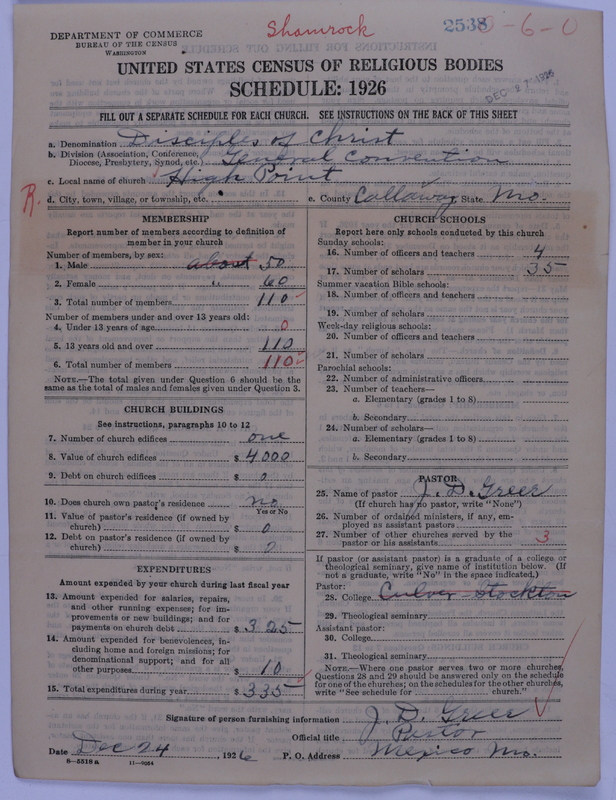 Shamrock
2538
-6-0
DEPARTMENT OF COMMERCE
BUREAU OF THE CENSUS
WASHINGTON
UNITED STATES CENSUS OF RELIGIOUS BODIES
SCHEDULE: 1926
DEC 1926
FILL OUT A SEPARATE SCHEDULE FOR EACH CHURCH. SEE INSTRUCTIONS ON THE BACK OF THIS SHEET
a. Denomination Disciples of Christ
b. Division (Association, Conference, Diocese, Presbytery, Synod, etc.) General Convention
c. Local name of church High Point
R.
d. City, town, village, or township, etc.
e. County Callaway State Mo.
MEMBERSHIP
Report number of members according to definition of
member in your church
Number of members, by sex:
1. Male about 50
2. Female " 60
3. Total number of members 110
Number of members under and over 13 years old:
4. Under 13 years of age 0
5. 13 years old and over 110
6. Total number of members 110
NOTE.—The total given under Question 6 should be the
same as the total of males and females given under Question 3.
CHURCH BUILDINGS
See instructions, paragraphs 10 to 12
7. Number of church edifices one
8. Value of church edifices $ 4000
9. Debt on church edifices $ 0
10. Does church own pastor's residence? No
Yes or No
11. Value of pastor's residence (if owned by
church) $ 0
12. Debt on pastor's residence (if owned by
church) $ 0
EXPENDITURES
Amount expended by your church during last fiscal year
13. Amount expended for salaries, repairs,
and other running expenses; for im-
provements or new buildings; and for
payments on church debt $ 325
14. Amount expended for benevolences, in-
cluding home and foreign missions; for
denominational support; and for all
other purposes $ 10
15. Total expenditures during year $ 335
CHURCH SCHOOLS
Report here only schools conducted by this church
Sunday schools:
16. Number of officers and teachers 4
17. Number of scholars 35
Summer vacation Bible schools:
18. Number of officers and teachers
19. Number of scholars
Week-day religious schools:
20. Number of officers and teachers
21. Number of scholars
Parochial schools:
22. Number of administrative officers
23. Number of teachers—
a. Elementary (grades 1 to 8)
b. Secondary
24. Number of scholars—
a. Elementary (grades 1 to 8)
b. Secondary
PASTOR
25. Name of pastor J. D. Greer
(If church has no pastor, write "None")
26. Number of ordained ministers, if any, em-
ployed as assistant pastors
27. Number of other churches served by the
pastor or his assistants 3
If pastor (or assistant pastor) is a graduate of a college or
theological seminary, give name of institution below. (If
not a graduate, write "No" in the space indicated.)
Pastor:
28. College Culver-Stockton
29. Theological seminary
Assistant pastor:
30. College
31. Theological seminary
NOTE.—Where one pastor serves two or more churches,
Questions 28 and 29 should be answered only on the schedule
for one of the churches; on the schedules for the other churches,
write "See schedule for church."
Signature of person furnishing information J. D. Greer
Official title Pastor
Date Dec 24, 1926 P. O. Address Mexico Mo.
8-5518a 11-9054